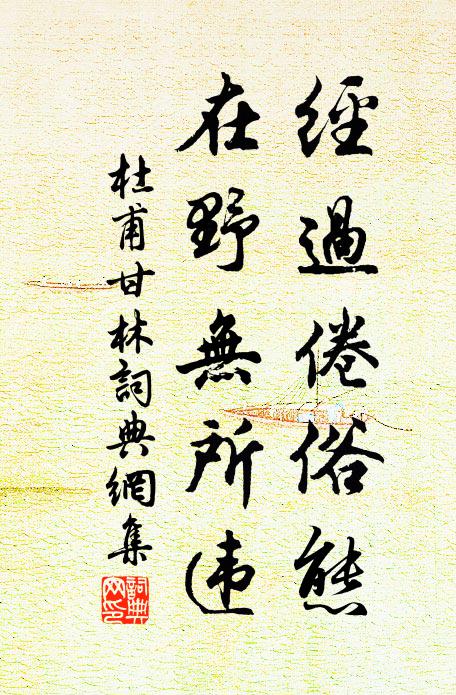 經過倦俗態
在野無所违
杜甫甘林詞典網集
詞典网印